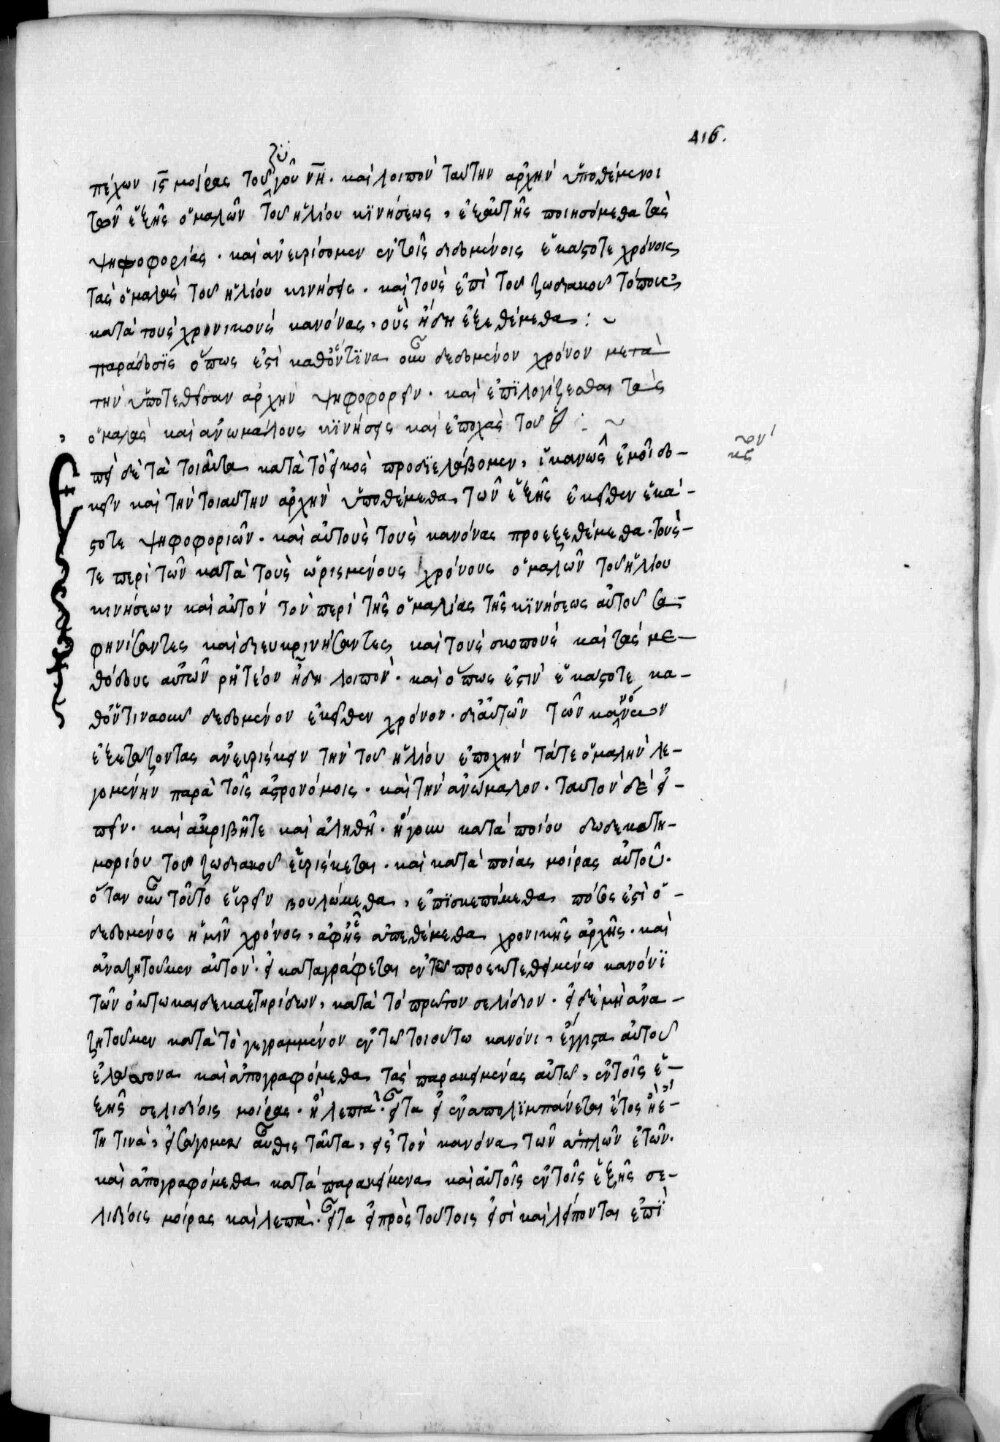 416.
πέχων ιϛ μοίρας τοῦ ζυγοῦ νη. καὶ λοιπὸν ταύτην ἀρχὴν ὑποθέμενοι
τῶν ἑξῆς ὁμαλῶν τοῦ ἡλίου κϊνήσεως, ἐξαὐτῆς ποιησόμεθα τὰς
ψηφοφορίας. καὶ ἀνευρίσομεν ἐν τοῖς διδομένοις ἑκάστοτε χρόνοις
τὰς ὁμαλὰς τοῦ ἡλίου κινήσεις. καὶ τοὺς ἐπὶ τοῦ ζωδιακοῦ τόπους
κατὰ τοὺς χρονικοὺς κανόνας, οὓς ἤδη ἐξεθέμεθα : ~
παράδοσϊς ὅπως ἐστὶ καθόντϊνα οὖν δεδομένον χρόνον μετὰ
τὴν ὑποτεθεῖσαν ἀρχὴν ψηφοφορεῖν. καὶ ἐπϊλογίζεσθαι τὰς
ὁμαλὰς καὶ ἀνωμάλους κϊνήσεις καὶ ἐποχὰς τοῦ : ~
πεὶ δὲ τὰ τοιαῦτα κατὰ τὸ εἰκὸς προδϊελάβομεν, ἱκανῶς ἐμοὶ δο-
κεῖν καὶ τὴν τοιαύτην ἀρχὴν ὑποθέμεθα τῶν ἑξῆς ἐκεῖθεν ἑκά-
στοτε ψηφοφοριῶν. καὶ αὐτοὺς τοὺς κανόνας προεξεθέμεθα. τούς-
τε περὶ τῶν κατὰ τοὺς ὡρισμένους χρόνους ὁμαλῶν τοῦ ἡλίου
κινήσεων καὶ αὐτὸν τὸν περὶ τῆς ὁμαλίας τῆς κϊνήσεως αὐτοῦ σα-
φηνίσαντες καὶ διευκρινήσαντες καὶ τοὺς σκοποὺς καὶ τὰς με-
θόδους αὐτῶν ῥητέον ἤδη λοιπόν. καὶ ὅπως ἐστὶν ἑκάστοτε κα-
θόντιναοῦν δεδομένον ἐκεῖθεν χρόνον. διαὐτῶν τῶν κανόνων
ἐξετάζοντας ἀνευρίσκειν τὴν τοῦ ἡλίου ἐποχὴν τάτε ὁμαλὴν λε-
γομένην παρὰ τοῖς ἀστρονόμοις. καὶ τὴν ἀνώμαλον. ταυτὸν δὲ εἰ-
πεῖν. καὶ ἀκριβῆτε καὶ ἀληθῆ. ἤγουν κατὰ ποίου δωδεκατη-
μορίου τοῦ ζωδιακοῦ εὑρίσκεται. καὶ κατὰ ποίας μοίρας αὐτοῦ.
ὅταν οὖν τοῦτο εὑρεῖν βουλώμεθα, ἐπϊσκεπτόμεθα πόσος ἐστὶ ὁ
δεδομένος ἡμῖν χρόνος, ἀφῆς ἀπεθέμεθα χρονικῆς ἀρχῆς. καὶ
ἀναζητοῦμεν αὐτόν. εἰ καταγράφεται ἐν τῶ προεκτεθειμένω κανόνϊ
τῶν ὀκτωκαιδεκαετηρίδων, κατὰ τὸ πρῶτον σελίδιον. εἰ δὲ μὴ ἀνα-
ζητοῦμεν κατὰ τὸ γεγραμμένον ἐν τῶ τοιούτω κανόνι, ἔγγιστα αὐτοῦ
ἐλάσσονα καὶ ἀπογραφόμεθα τὰς παρακειμένας αὐτῶ, ἐν τοῖς ἑ-
ξῆς σελιδίοις μοίρας. ἢ λεπτὰ. εἶτα εἰ ἐναπολϊμπάνεται ἔτος ἢ ἔ-
τη τινὰ, εἰσάγομεν αὖθις ταῦτα, εἰς τὸν κανόνα τῶν ἁπλῶν ἐτῶν.
καὶ ἀπογραφόμεθα κατὰ παρακείμενα καὶ αὐτοῖς ἐν τοῖς ἑξῆς σε-
λιδίοις μοίρας καὶ λεπτὰ. εἶτα εἰ πρὸς τούτοις εἰσὶ καὶ λείπονται ἐπὶ